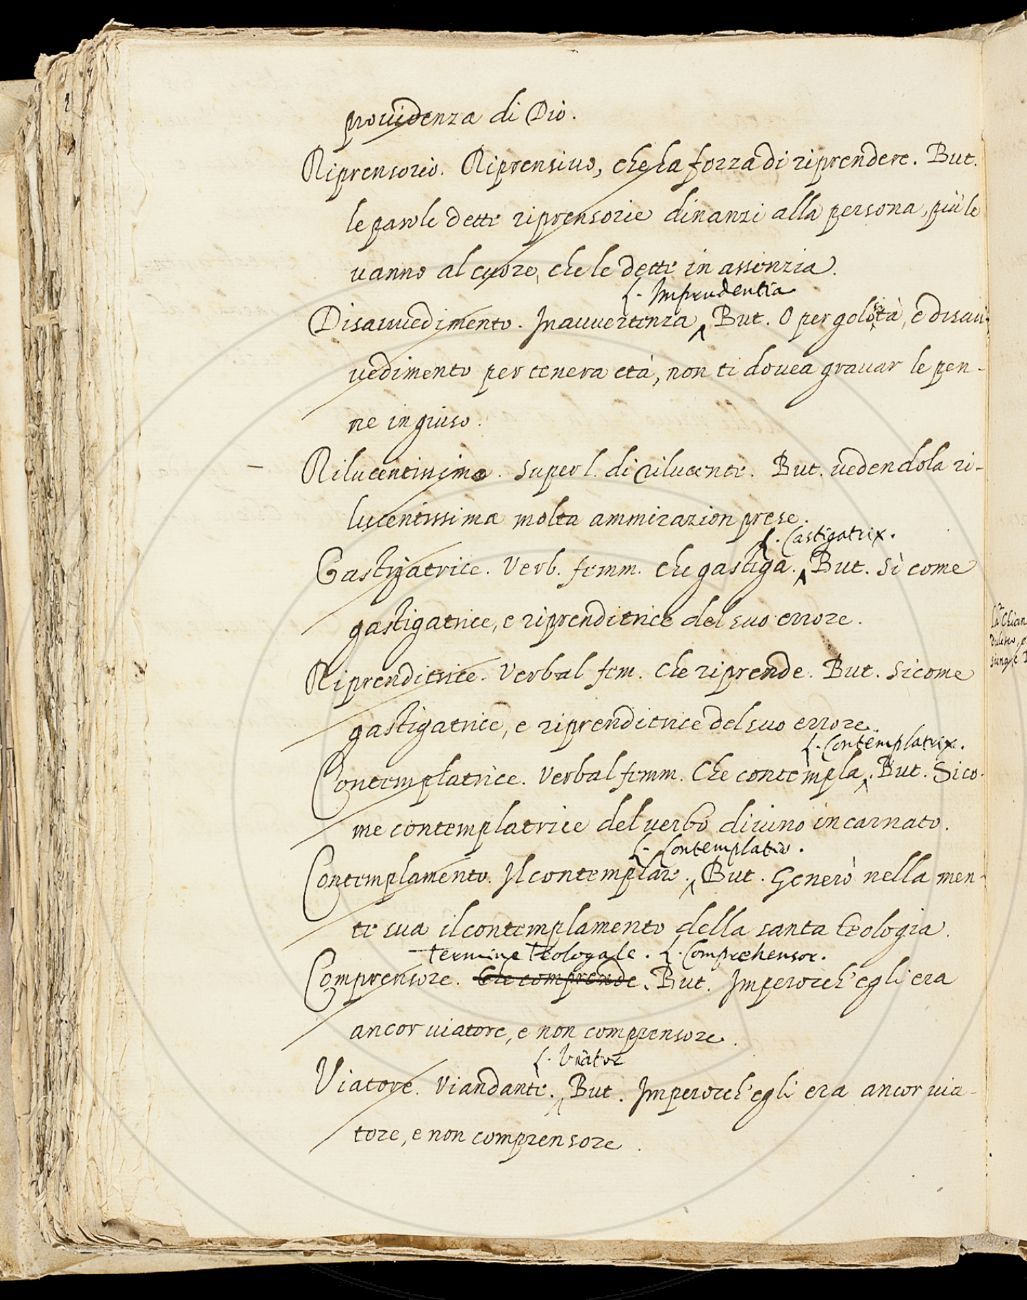 providenza di Dio.
Riprensorio. Riprensivo, che ha forza di riprendere. But.
le parole dette riprensorie dinanzi alla persona, più le
vanno al cuore, che le dette in assenzia.
L. Imprudentia
Disavvedimento. Inavvertenza ^ But. O per golosità, e disav-
vedimento per tenera età, non ti dovea gravar le pen-
ne in giuso.
Rilucentissimo. Superl. di rilucente. But. vedendola ri-
lucentissima molta ammirazion prese.
L. Castigatrix.
Gastigatrice. Verb. femm. che gastiga. ^ But. Sì come
gastigatrice, e riprenditrice del suo errore.
Riprenditrice. Verbal fem. Che riprende. But. Sicome
gastigatrice, e riprenditrice del suo errore.
L. Contemplatrix.
Contemplatrice. Verbal femm. Che contempla ^. But. Sico-
me contemplatrice del verbo divino incarnato.
L. Contemplatio.
Contemplamento. Il contemplare. ^ But. Generò nella men-
te sua il contemplamento della santa teologia.
Termine Teologale. L. Comprehensor.
Comprensore. Che comprende. But. Imperocch'egli era
ancor viatore, e non comprensore.
L. Viator
Viatore. Viandante. ^ But. Imperocch'egli era ancor via-
tore, e non comprensore.